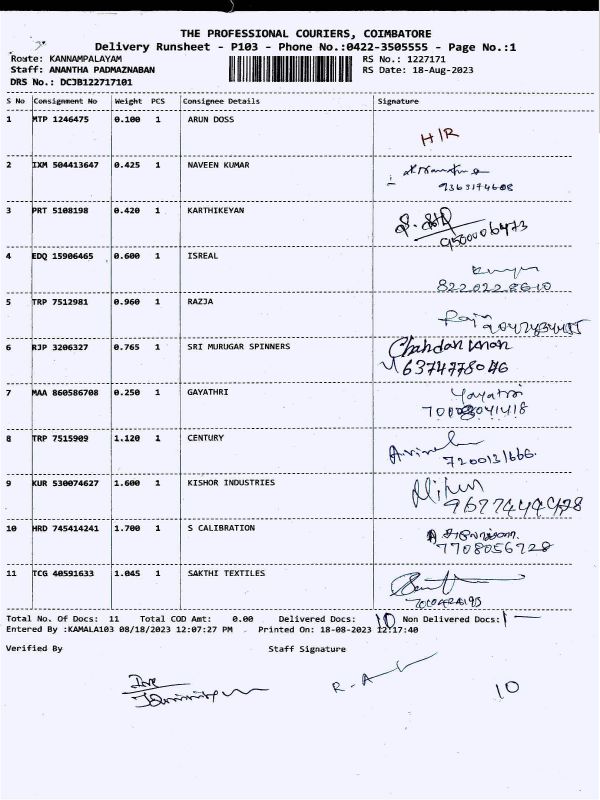 THE PROFESSIONAL COURIERS, COIMBATORE
Delivery Runsheet - P103 - Phone No.:0422-3505555 - Page No.:1
Route: KANNAMPALAYAM RS No.: 1227171
Staff: ANANTHA PADMAZNABAN RS Date: 18-Aug-2023
DRS No.: DCJB122717101
S No Consignment No Weight PCS Consignee Details Signature
1 MTP 1246475 0.100 1 ARUN DOSS
H/R
2 IXM 504413647 0.425 1 NAVEEN KUMAR
9363174608
3 PRT 5108198 0.420 1 KARTHIKEYAN
9500006473
4 EDQ 15906465 0.600 1 ISREAL
8220228610
5 TRP 7512981 0.960 1 RAZJA
6 RJP 3206327 0.765 1 SRI MURUGAR SPINNERS Chandan khan
6374778046
7 MAA 860586708 0.250 1 GAYATHRI
8 TRP 7515909 1.120 1 CENTURY
7200131666.
9 KUR 530074627 1.600 1 KISHOR INDUSTRIES
10 HRD 745414241 1.700 1 S CALIBRATION
7708056728
11 TCG 40591633 1.045 1 SAKTHI TEXTILES
Total No. Of Docs: 11 Total COD Amt: 0.00 Delivered Docs: 10 Non Delivered Docs: 1
Entered By :KAMALA103 08/18/2023 12:07:27 PM Printed On: 18-08-2023 12:17:40
Verified By Staff Signature
10